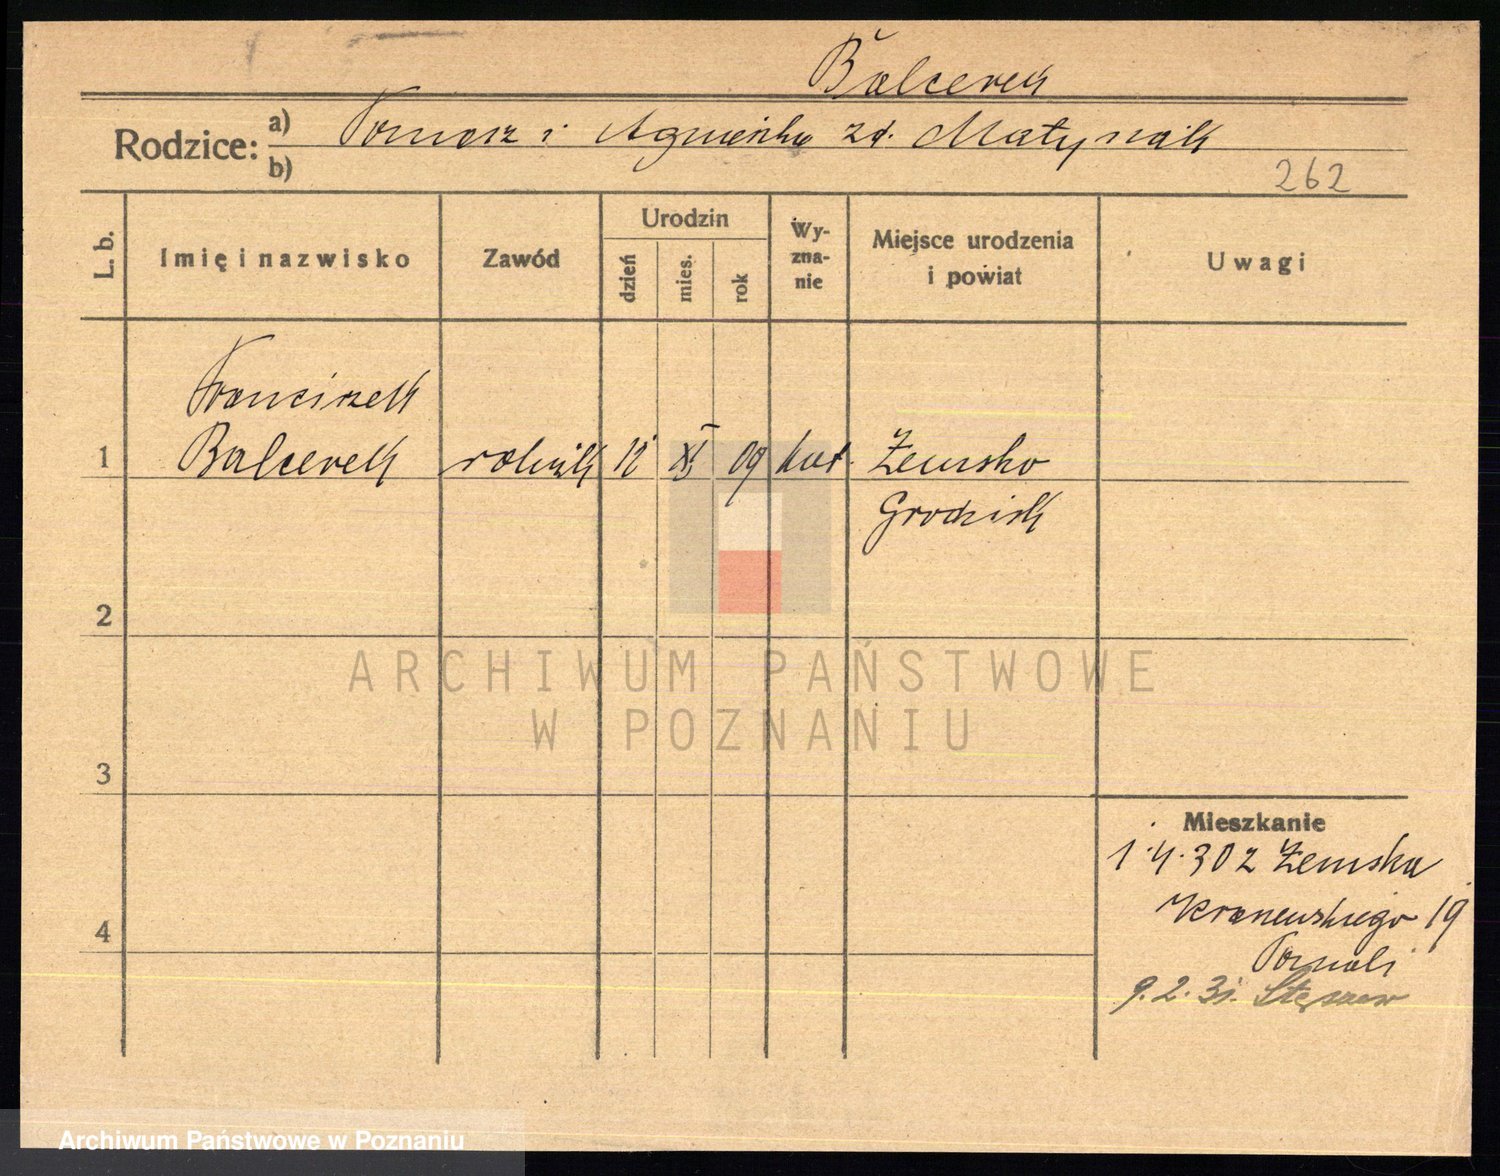 Balcerek
Rodzice: a) Tomasz i Agnieszka zd. Matyniak
b)
262
L. b.
Imię i nazwisko
Zawód
Urodzin
dzień
mies.
rok
Wy-
zna-
nie
Miejsce urodzenia
i powiat
Uwagi
Franciszek
1 Balcerek rolnik 12 XI 09 kat. Żemsko
Grodzisk
2
ARCHIWUM PAŃSTWOWE
W POZNANIU
3
Mieszkanie
1.4.30 z Żemska
19
4
9.2.31. Stęszew
Archiwum Państwowe w Poznaniu